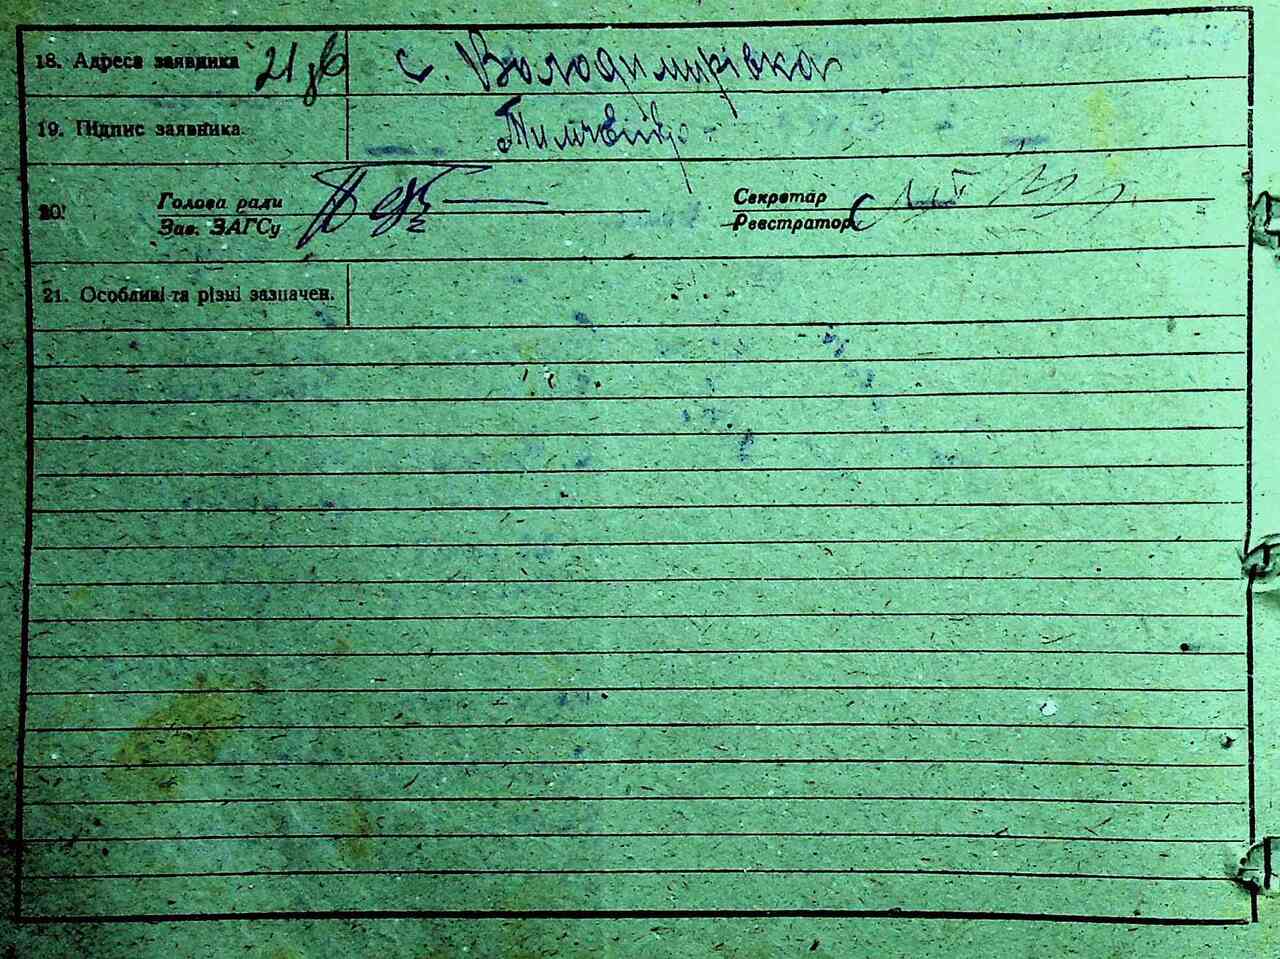 18. Адреса заявника с. Володимирівка
19. Підпис заявника.
20. Голова ради Секретар
Зав. ЗАГСу Реєстратор
21. Особливі та різні зазначен.